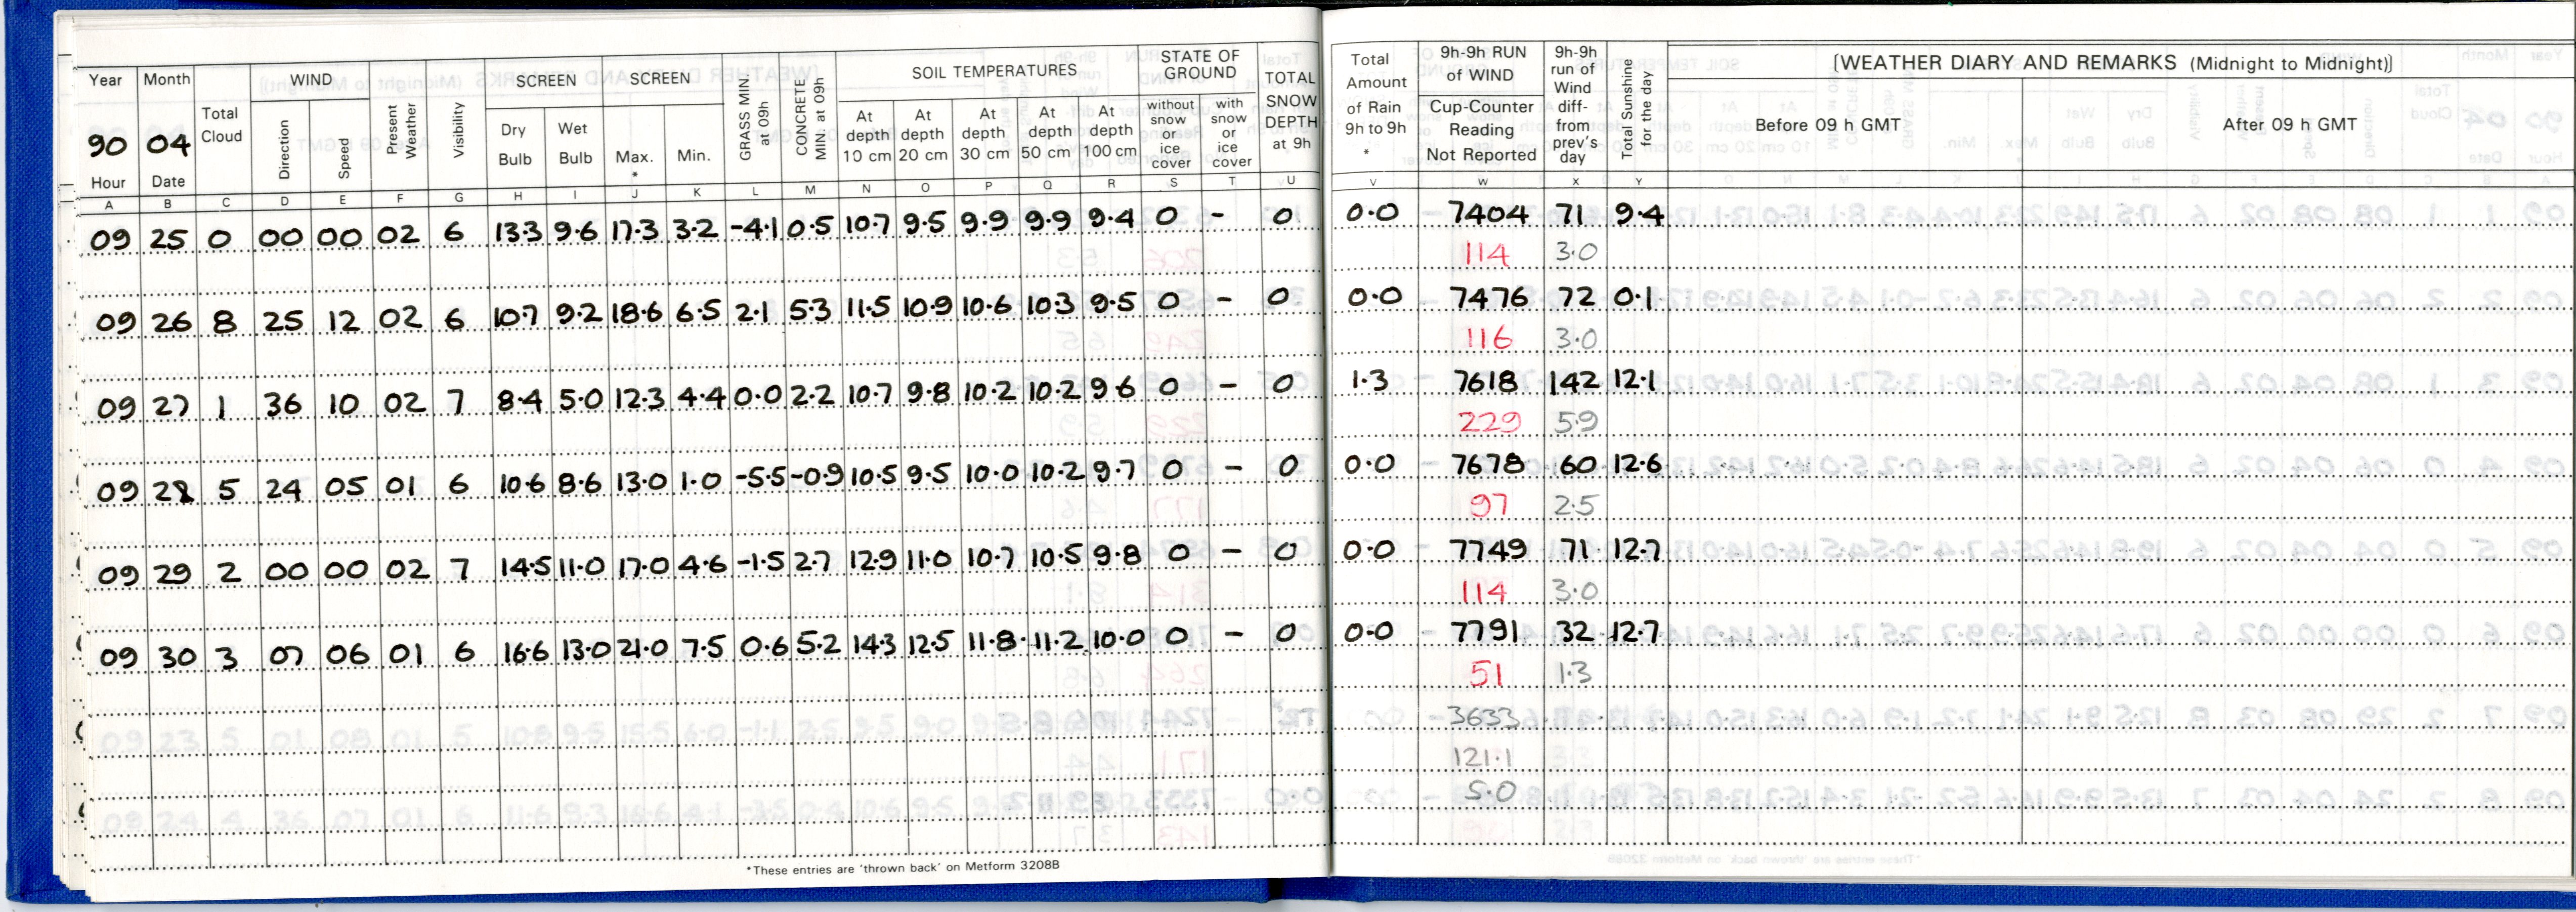 Year Month WIND SCREEN SCREEN SOIL TEMPERATURES STATE OF GROUND
Total Cloud Direction Speed Present Weather Visibility Dry Bulb Wet Bulb Max. * Min. GRASS MIN at 09h CONCRETE MIN. at 09h At depth 10 cm At depth 20 cm At depth 30 cm At depth 50 cm At depth 100 cm without snow or ice cover with snow or ice cover TOTAL SNOW DEPTH at 9h
90 04
Hour Date
Total Amount of Rain 9h to 9h * 9h-9h RUN of WIND Cup-Counter Reading Not Reported 9h-9h run of Wind diff- from prev's day Total Sunshine for the day [WEATHER DIARY AND REMARKS (Midnight to Midnight)]
Before 09 h GMT After 09 h GMT
A B C D E F G H I J K L M N O P Q R S T U V W X Y
09 25 0 00 00 02 6 13.3 9.6 17.3 3.2 -4.1 0.5 10.7 9.5 9.9 9.9 9.4 0 - 0 0.0 7404 71 9.4
114 3.0
09 26 8 25 12 02 6 10.7 9.2 18.6 6.5 2.1 5.3 11.5 10.9 10.6 10.3 9.5 0 - 0 0.0 7476 72 0.1
116 3.0
09 27 1 36 10 02 7 8.4 5.0 12.3 4.4 0.0 2.2 10.7 9.8 10.2 10.2 9.6 0 - 0 1.3 7618 142 12.1
229 5.9
09 28 5 24 05 01 6 10.6 8.6 13.0 1.0 -5.5 -0.9 10.5 9.5 10.0 10.2 9.7 0 - 0 0.0 7678 60 12.6
97 2.5
09 29 2 00 00 02 7 14.5 11.0 17.0 4.6 -1.5 2.7 12.9 11.0 10.7 10.5 9.8 0 - 0 0.0 7749 71 12.7
114 3.0
09 30 3 07 06 01 6 16.6 13.0 21.0 7.5 0.6 5.2 14.3 12.5 11.8 11.2 10.0 0 - 0 0.0 7791 32 12.7
51 1.3
3633
121.1
5.0
*These entries are 'thrown back' on Metform 3208B